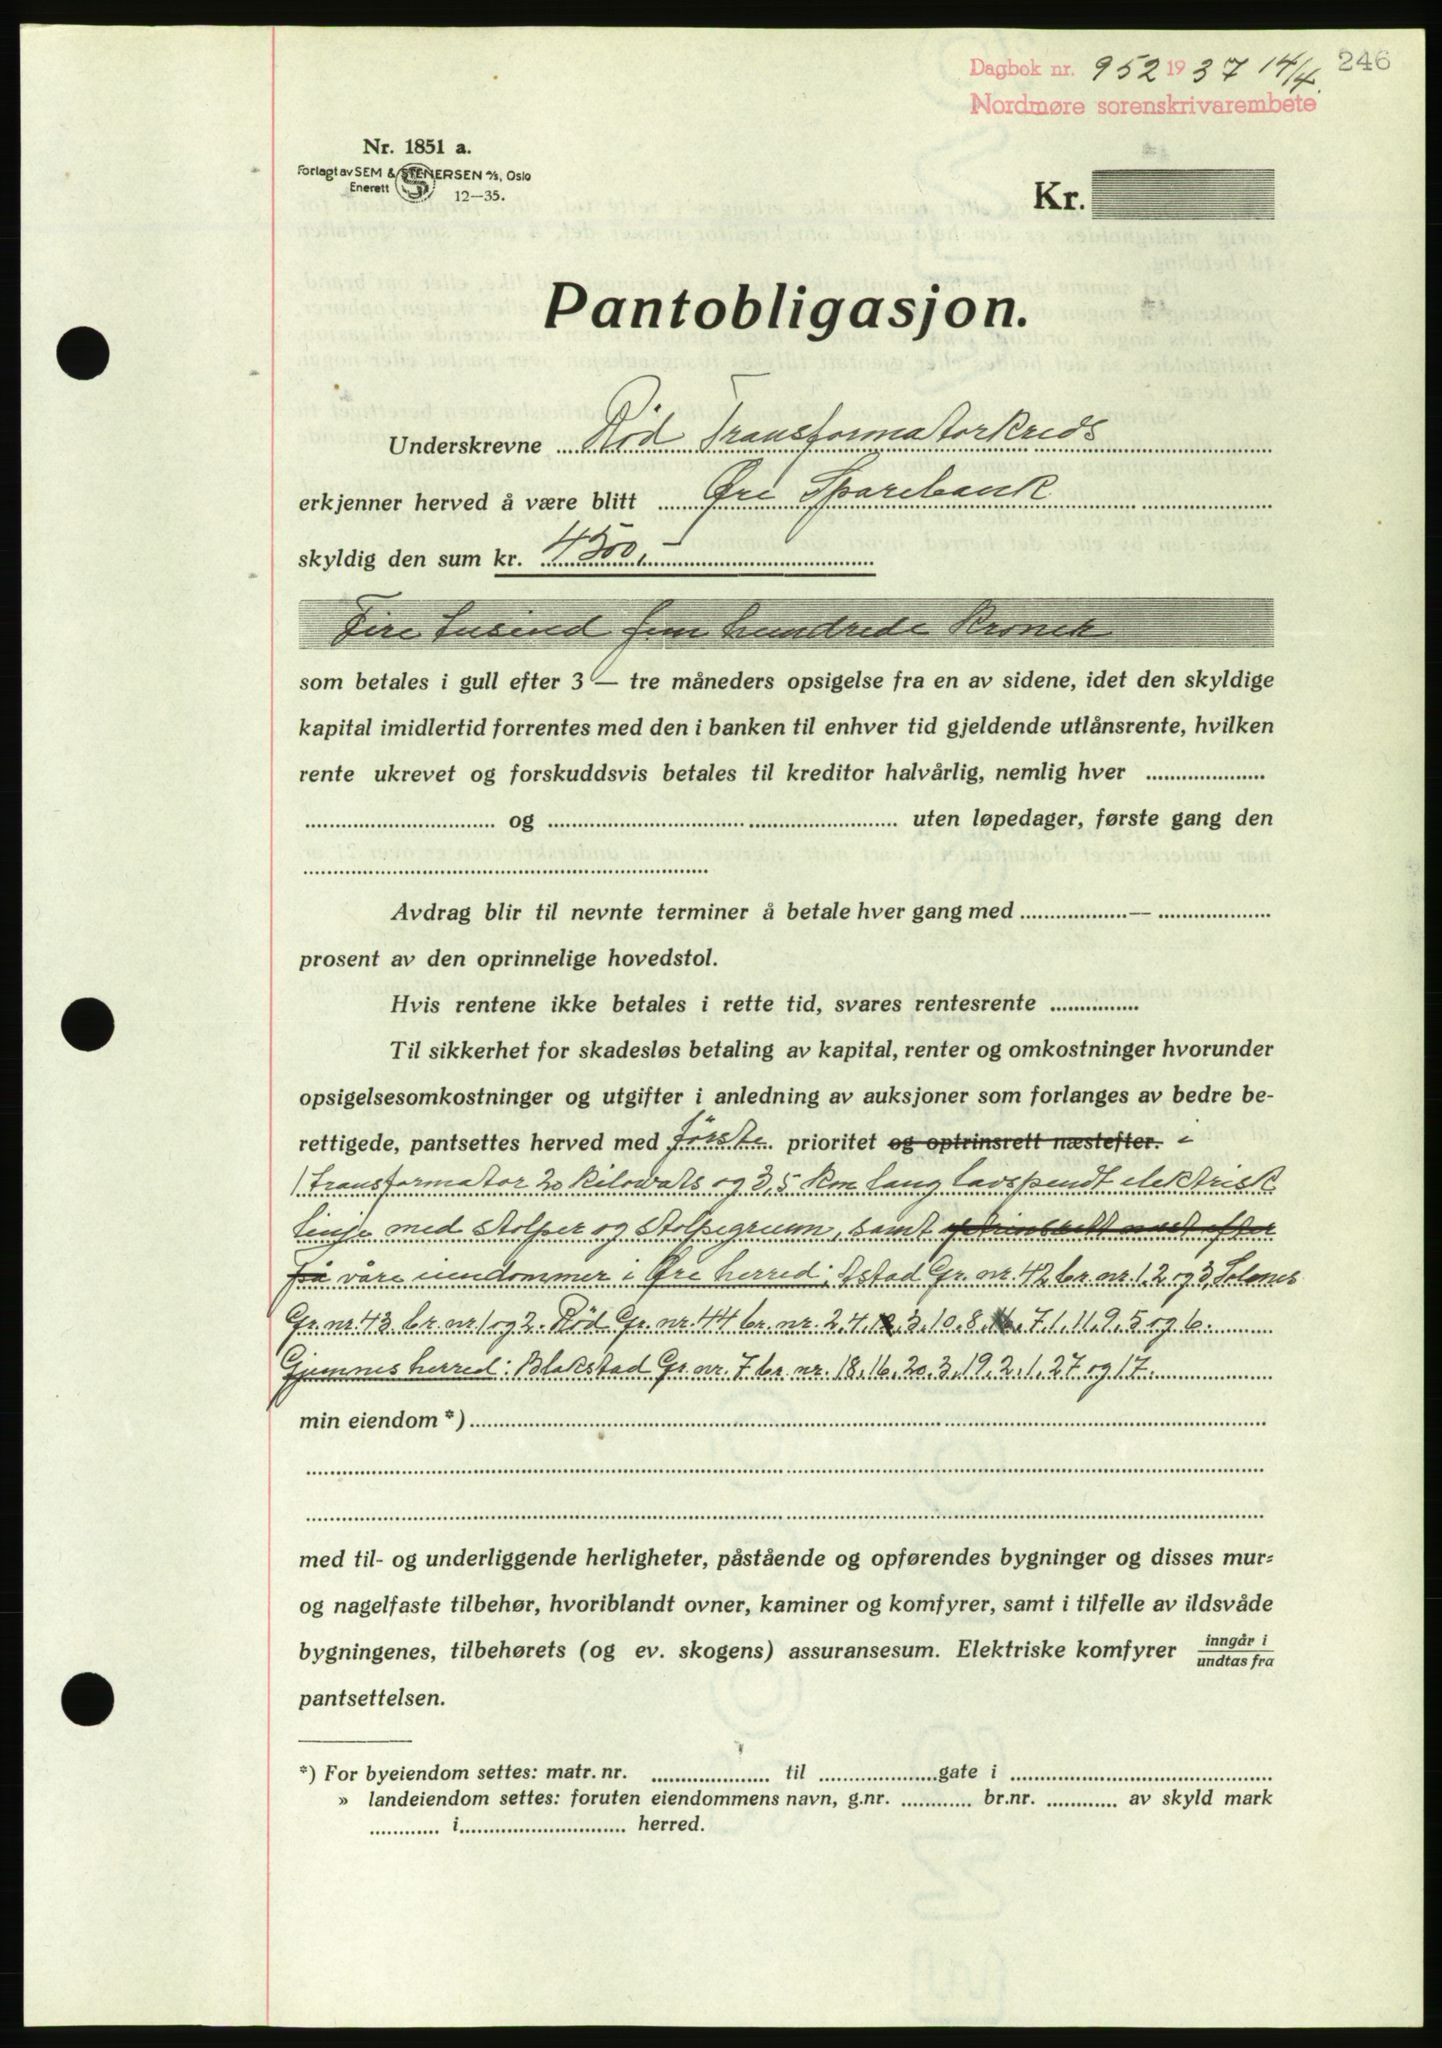 Dagbok nr. 952 1937 14/4. 246
Nordmøre sorenskrivarembete
Nr. 1851 a.
Forlagt av SEM & STENERSEN A/S, Oslo
Enerett
12—35.
Kr.
Pantobligasjon.
Underskrevne Rød Transformatorkreds
erkjenner herved å være blitt Øre Sparebank
skyldig den sum kr. 4500,-
Fire tusind fem hundrede Kroner
som betales i gull efter 3 — tre måneders opsigelse fra en av sidene, idet den skyldige
kapital imidlertid forrentes med den i banken til enhver tid gjeldende utlånsrente, hvilken
rente ukrevet og forskuddsvis betales til kreditor halvårlig, nemlig hver
og uten løpedager, første gang den
Avdrag blir til nevnte terminer å betale hver gang med —
prosent av den oprinnelige hovedstol.
Hvis rentene ikke betales i rette tid, svares rentesrente
Til sikkerhet for skadesløs betaling av kapital, renter og omkostninger hvorunder
opsigelsesomkostninger og utgifter i anledning av auksjoner som forlanges av bedre be-
rettigede, pantsettes herved med første prioritet og optrinsrett næstefter. i
1 transformator 20 kilowats og 3,5 km lang lavspendt elektrisk
linje med stolper og stolpegrunn, samt optrinsrett næst efter
på våre eiendommer i Øre herred; Astad Gr. nr. 42 br. nr. 1, 2 og 3, Solsnes
Gr. nr. 43 br. nr. 1 og 2. Rød Gr. nr. 44 br. nr. 2, 4, 3, 10, 8, 7, 1, 11, 9, 5 og 6.
Gjemnes herred: Blakstad Gr. nr. 7 br. nr. 18, 16, 20, 3, 19, 2, 1, 27 og 17.
min eiendom *)
med til- og underliggende herligheter, påstående og opførendes bygninger og disses mur-
og nagelfaste tilbehør, hvoriblandt ovner, kaminer og komfyrer, samt i tilfelle av ildsvåde
bygningenes, tilbehørets (og ev. skogens) assuransesum. Elektriske komfyrer inngår i
undtas fra
pantsettelsen.
*) For byeiendom settes: matr. nr. til gate i
» landeiendom settes: foruten eiendommens navn, g.nr. br.nr. av skyld mark
i herred.